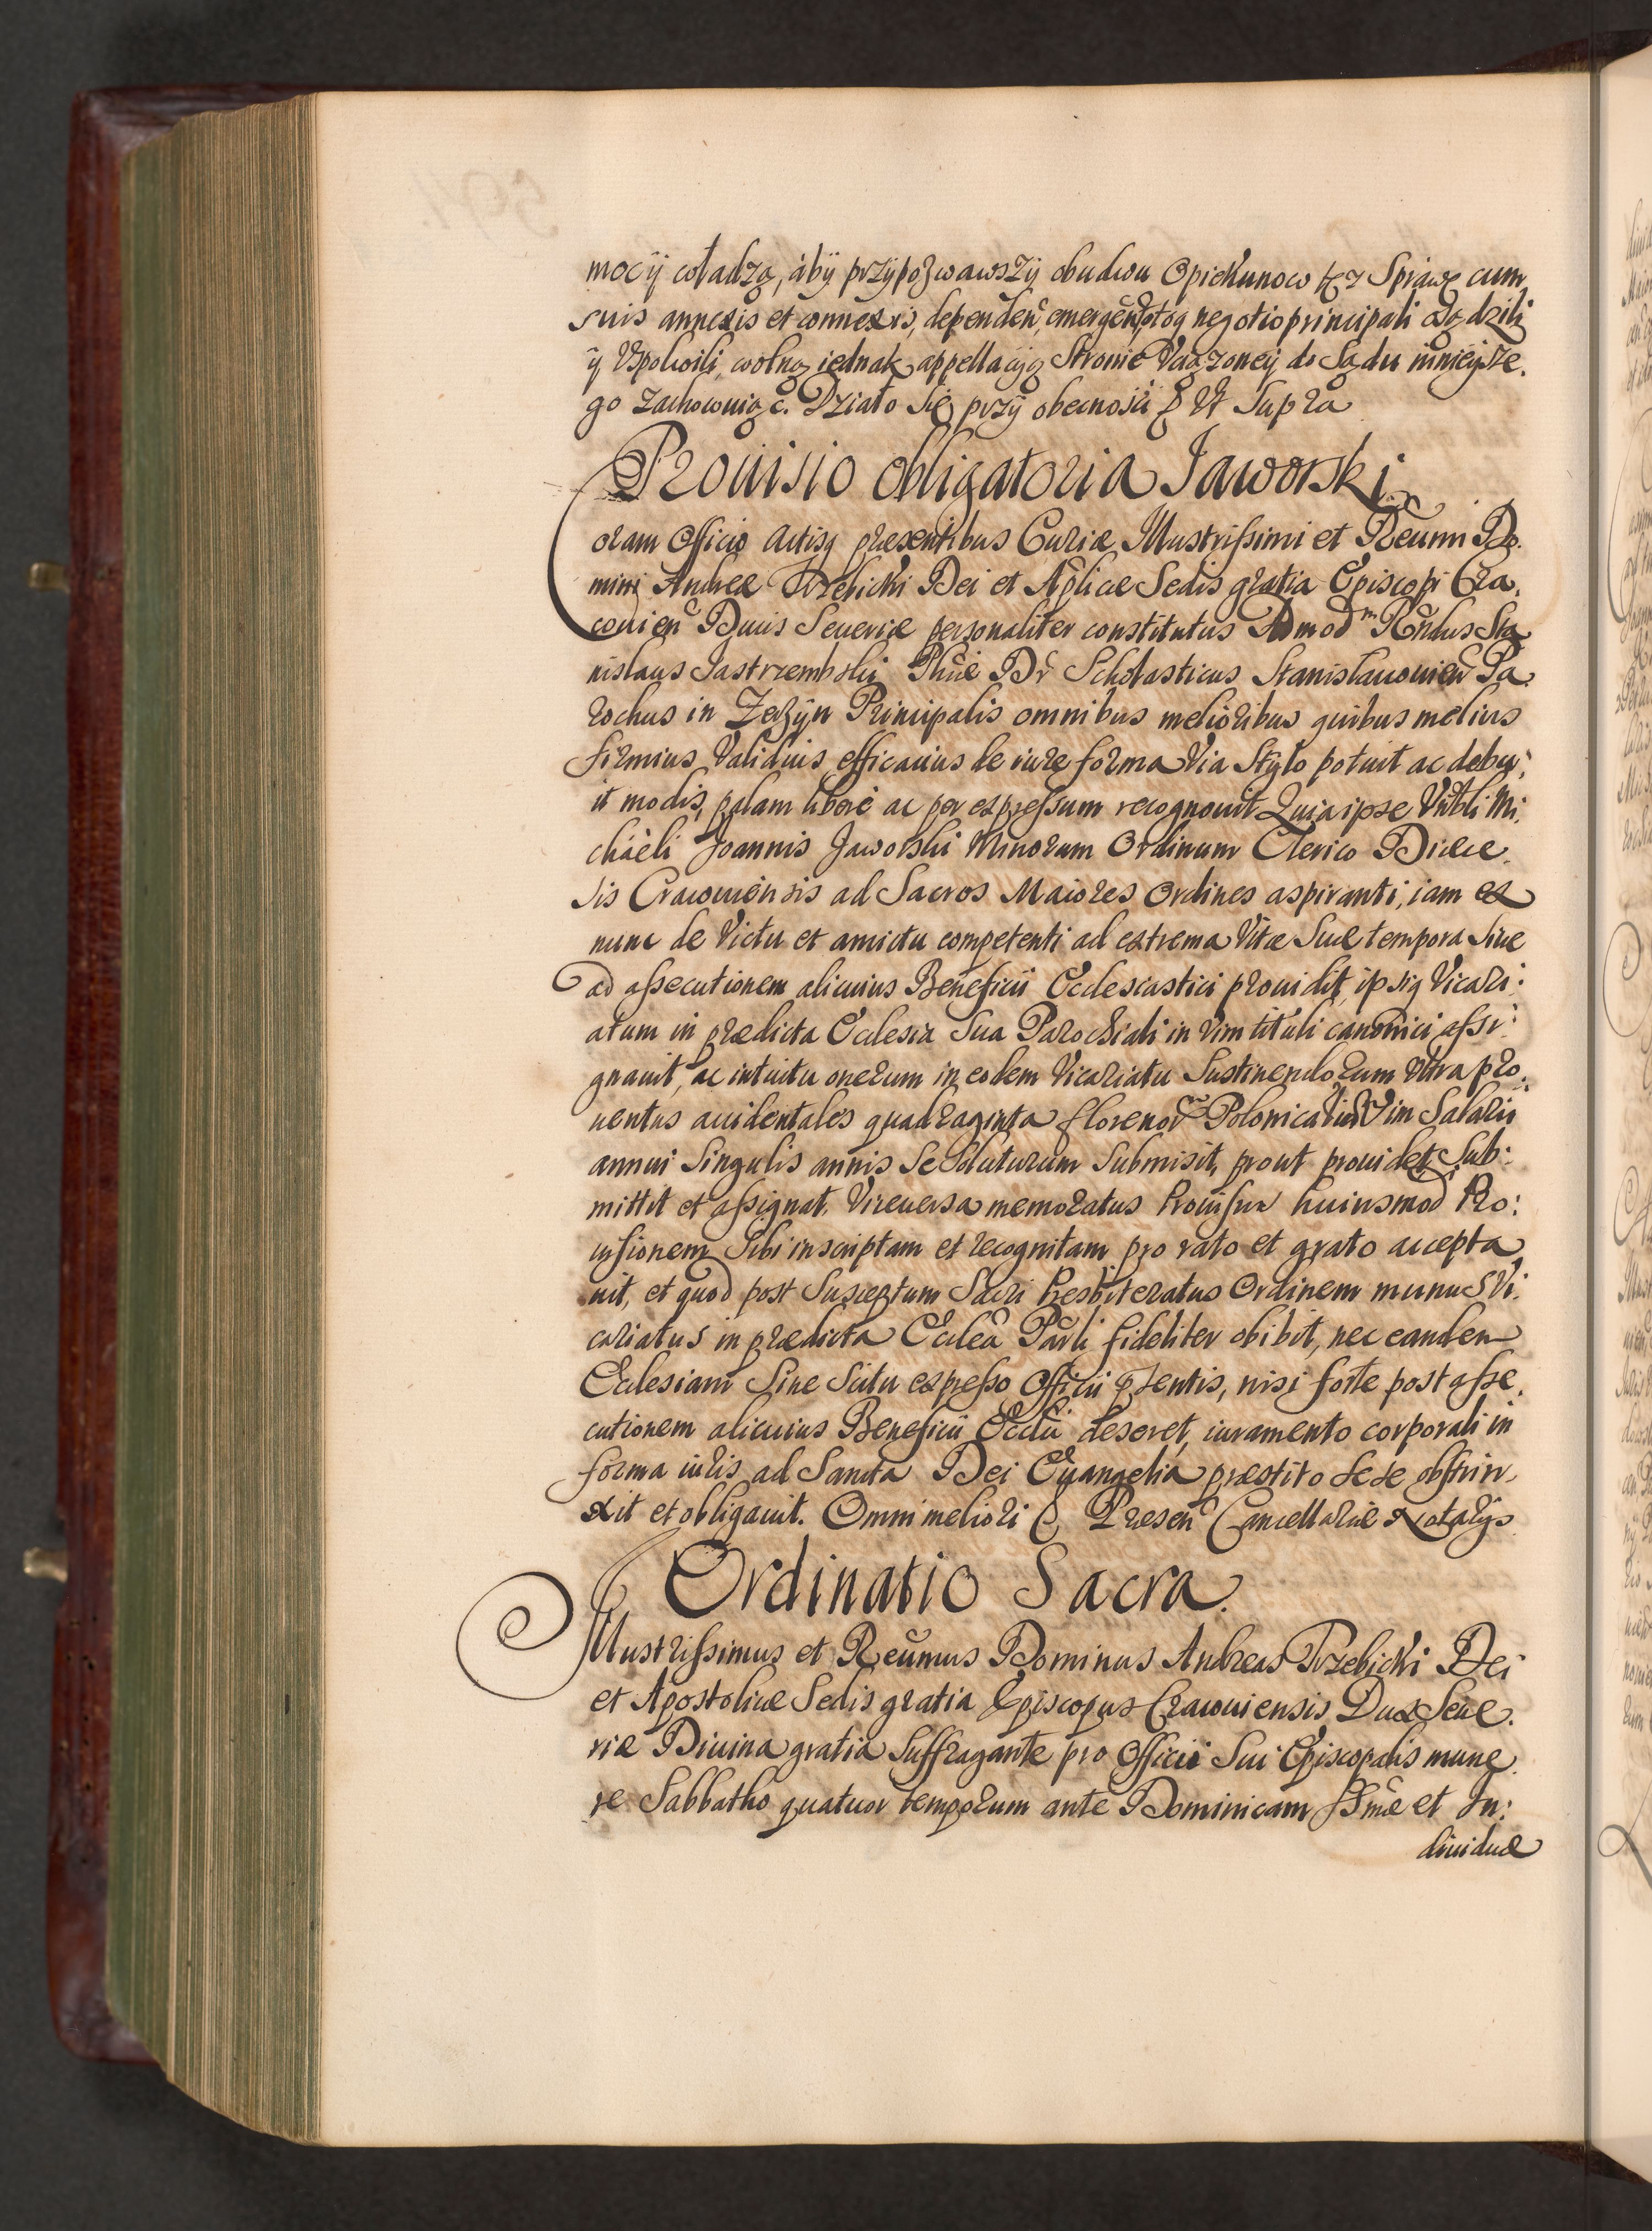 mocÿ władzą, abÿ przÿpozwawszÿ obudwu Opiekunow tęż Sprawę cum
suis annexis et connexis, dependeñ, emergeñ totoq negotio principali osądzili
ÿ Uspokoili, wolną iednak appellacÿą Stronie Urażoneÿ do Sądu ninieÿsze.
go zachowuiąc. Działo się przÿ obecnosci & Ut Supra
Prouisio obligatoria Jaworski
Coram Officio Actisq præsentibus Curiæ Illustrissimi et Reũmi Do.
mini Andreæ Trzebicki Dei et Aplicæ Sedis gratia Episcopi Cra.
couieñ Ducis Seueriæ personaliter constitutus Admod.m Rñdus Sta
nislaus Jastrzembski Phiæ Dr Scholasticus Stanislauouieñ Pa.
rochus in Zerzÿn Principalis omnibus melioribus quibus melius
firmius Validius, efficacius de iure forma Via Stÿlo potuit ac debu;
it modis, palam libere ac per expressum recognouit Quia ipse Vñbli Mi.
chaeli Joannis Jaworski Minorum Ordinum Clerico Diæce.
sis Cracouiensis ad Sacros Maiores Ordines aspiranti, iam ex
nunc de Victu et amictu competenti ad extrema Vitæ Suæ tempora Siue
ad assecutionem alicuius Beneficii Ecclesiastici prouidit, ipsiq Vicari:
atum in prædicta Ecclesia Sua Parochiali in Vim tituli canonici assi:
gnauit, ac intuitu onerum in eodem Vicariatu Sustinendorum Ultra pro:
uentus accidentales quadraginta florenor Polonicaliũ Vim Salarii
annui Singulis annis Se Soluturum Submisit, prout prouidet Sub:
mittit et assignat. Viceuersa memoratus Prouisus huiusmod Pro:
uisionem Sibi inscriptam et recognitam pro rato et grato accepta
uit, et quod post Susceptum Sacri Presbiteratus Ordinem munus Vi.
cariatus in prædicta Eccleã Parli fideliter obibit, nec eandem
Ecclesiam Sine Scitu expresso Officii pñtentis, nisi forte post asse.
cutionem alicuius Beneficii Ecclii deseret, iuramento corporali in
forma iuris ad Sancta Dei Euangelia præstito sese obstrin.
xit et obligauit. Omni meliori & Præseñ Cancellariæ Notarÿs
Ordinatio Sacra.
Illustrissimus et Reũmus Dominus Andreas Trzebicki Dei
et Apostolicæ Sedis gratia Episcopus Cracouiensis Dux Seue.
riæ Diuina gratia Suffragante pro Officii Sui Episcopalis mune
re Sabbatho quatuor temporum ante Dominicam SSmæ et In:
diuiduæ